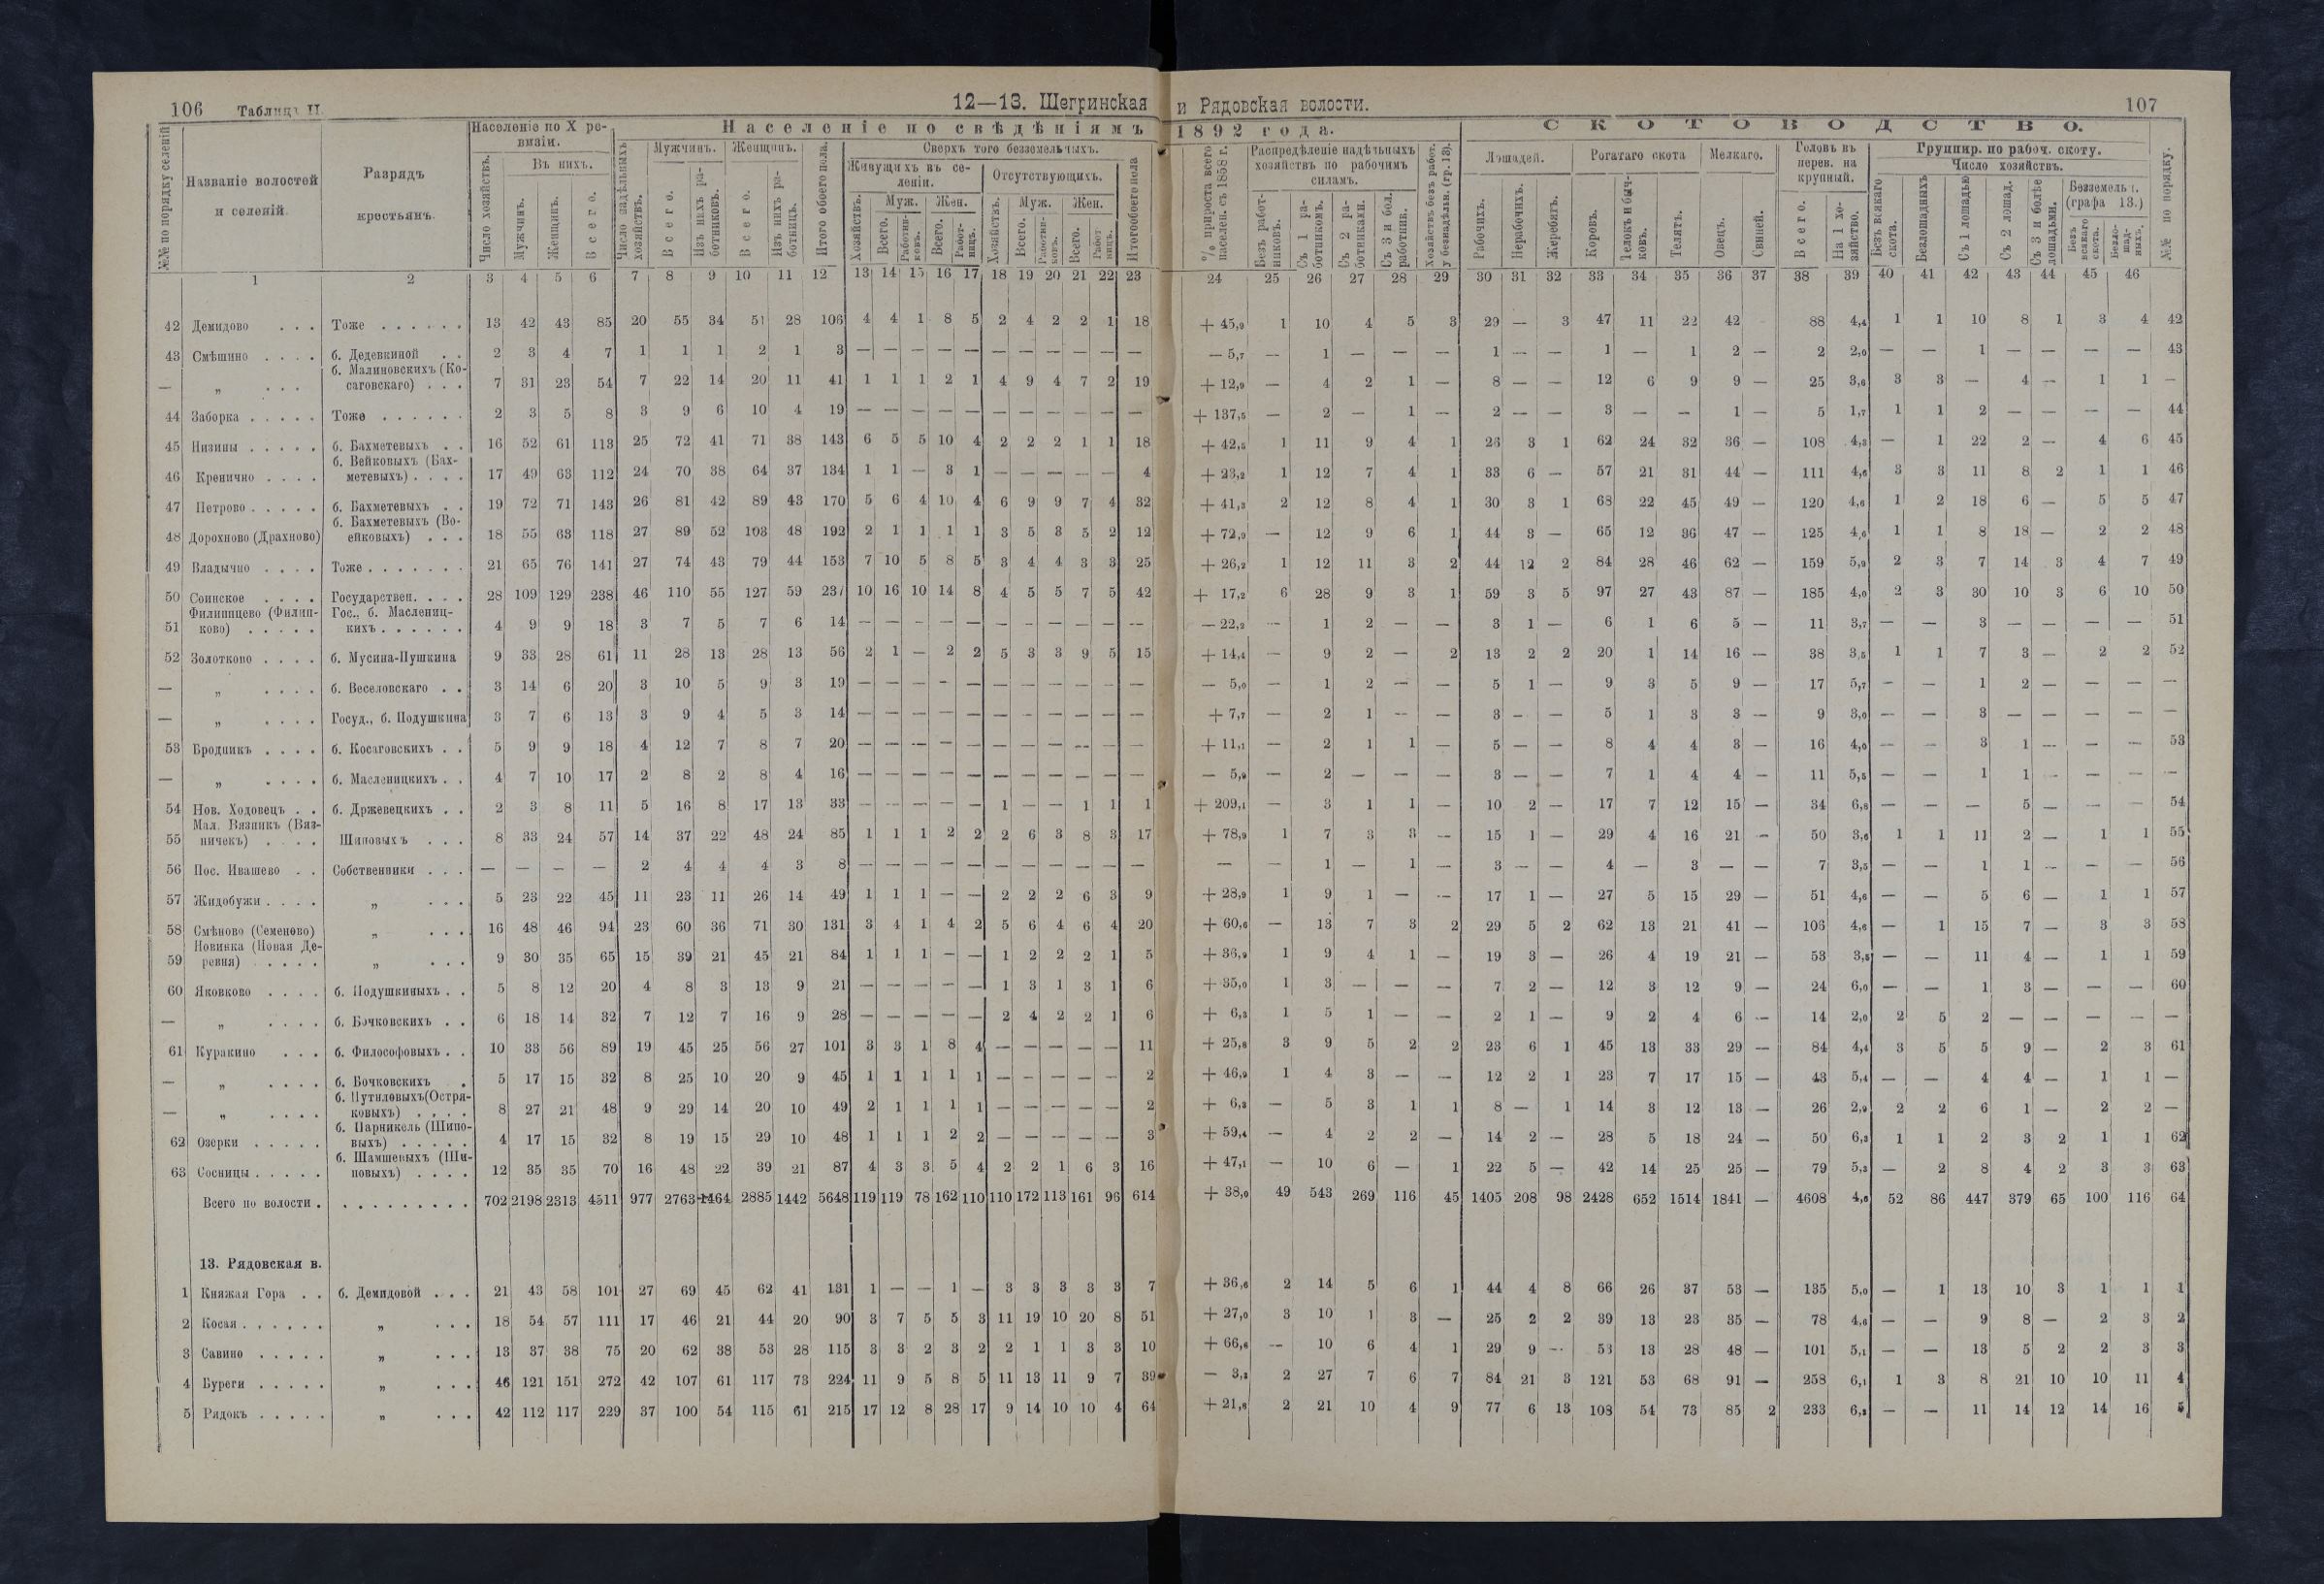 106 Таблица II.
12—13. Щегринская и Рядовская волости.
107
№№ по порядку селеній
Названіе волостей и селеній.
Разрядъ крестьянъ.
Населеніе по X ревизіи.
Число хозяйствъ.
Въ нихъ.
Мужчинъ.
Женщинъ.
Всего.
Населеніе по свѣдѣніямъ 1892 года.
Число надѣльныхъ хозяйствъ.
Мужчинъ.
Всего.
Изъ нихъ работниковъ.
Женщинъ.
Всего.
Изъ нихъ работницъ.
Итого обоего пола.
Сверхъ того безземельныхъ.
Живущихъ въ селеніи.
Хозяйствъ.
Муж.
Всего.
Работниковъ.
Жен.
Всего.
Работницъ.
Отсутствующихъ.
Хозяйствъ.
Муж.
Всего.
Работниковъ.
Жен.
Всего.
Работницъ.
Итого обоего пола
% прироста всего населен. съ 1858 г.
Распредѣленіе надѣльныхъ хозяйствъ по рабочимъ силамъ.
Безъ работниковъ.
Съ 1 работникомъ.
Съ 2 работниками.
Съ 3 и бол. работник.
Хозяйствъ безъ работ. у безнадѣльн. (гр. 13).
СКОТОВОДСТВО.
Лошадей.
Рабочихъ.
Нерабочихъ.
Жеребятъ.
Рогатаго скота
Коровъ.
Телокъ и бычковъ.
Телятъ.
Мелкаго.
Овецъ.
Свиней.
Головъ въ перев. на крупный.
Всего.
На 1 хозяйство.
Группир. по рабоч. скоту.
Число хозяйствъ.
Безъ всякаго скота.
Безлошадныхъ
Съ 1 лошадью
Съ 2 лошад.
Съ 3 и болѣе лошадьми.
Безземельн. (графа 13.)
Безъ всякаго скота.
Безлошадныхъ.
№№ по порядку.
1 2 3 4 5 6 7 8 9 10 11 12 13 14 15 16 17 18 19 20 21 22 23 24 25 26 27 28 29 30 31 32 33 34 35 36 37 38 39 40 41 42 43 44 45 46
42 Демидово . . . Тоже . . . . . . 13 42 43 85 20 55 34 51 28 106 4 4 1 8 5 2 4 2 2 1 18 + 45,9 1 10 4 5 3 29 — 3 47 11 22 42 88 4,4 1 1 10 8 1 3 4 42
43 Смѣшино . . . . б. Дедевкиной . . 2 3 4 7 1 1 1 2 1 3 — — — — — — — — — — — — 5,7 — 1 — — — 1 — — 1 — 1 2 — 2 2,0 — — 1 — — — — 43
— „ . . . б. Малиновскихъ (Косаговскаго) . . . 7 31 23 54 7 22 14 20 11 41 1 1 1 2 1 4 9 4 7 2 19 + 12,9 — 4 2 1 — 8 — — 12 6 9 9 — 25 3,6 3 3 — 4 — 1 1 —
44 Заборка . . . . . Тоже . . . . . . 2 3 5 8 3 9 6 10 4 19 — — — — — — — — — — — + 137,5 — 2 — 1 — 2 — — 3 — — 1 — 5 1,7 1 1 2 — — — — 44
45 Низины . . . . . б. Бахметевыхъ . . 16 52 61 113 25 72 41 71 38 143 6 5 5 10 4 2 2 2 1 1 18 + 42,5 1 11 9 4 1 26 3 1 62 24 32 36 — 108 4,3 — 1 22 2 — 4 6 45
46 Кренично . . . . б. Вейковыхъ (Бахметевыхъ) . . . . 17 49 63 112 24 70 38 64 37 134 1 1 — 3 1 — — — — — 4 + 23,2 1 12 7 4 1 33 6 — 57 21 31 44 — 111 4,6 3 3 11 8 2 1 1 46
47 Петрово . . . . . б. Бахметевыхъ . . 19 72 71 143 26 81 42 89 43 170 5 6 4 10 4 6 9 9 7 4 32 + 41,3 2 12 8 4 1 30 3 1 68 22 45 49 — 120 4,6 1 2 18 6 — 5 5 47
48 Дорохново (Драхново) б. Бахметевыхъ (Воейковыхъ) . . . 18 55 63 118 27 89 52 103 48 192 2 1 1 1 1 3 5 3 5 2 12 + 72,9 — 12 9 6 1 44 3 — 65 12 36 47 — 125 4,6 1 1 8 18 — 2 2 48
49 Владычно . . . . Тоже . . . . . . . 21 65 76 141 27 74 43 79 44 153 7 10 5 8 5 3 4 4 3 3 25 + 26,2 1 12 11 3 2 44 12 2 84 28 46 62 — 159 5,9 2 3 7 14 3 4 7 49
50 Соинское . . . . Государствен. . . . 28 109 129 238 46 110 55 127 59 237 10 16 10 14 8 4 5 5 7 5 42 + 17,2 6 28 9 3 1 59 3 5 97 27 43 87 — 185 4,0 2 3 30 10 3 6 10 50
51 Филиппцево (Филипково) . . . . . Гос., б. Маслениц­кихъ . . . . . . 4 9 9 18 3 7 5 7 6 14 — — — — — — — — — — — — 22,2 — 1 2 — — 3 1 — 6 1 6 5 — 11 3,7 — — 3 — — — — 51
52 Золотково . . . . б. Мусина-Пушкина 9 33 28 61 11 28 13 28 13 56 2 1 — 2 2 5 3 3 9 5 15 + 14,4 — 9 2 — 2 13 2 2 20 1 14 16 — 38 3,5 1 1 7 3 — 2 2 52
— „ . . . . б. Веселовскаго . . 3 14 6 20 3 10 5 9 3 19 — — — — — — — — — — — — 5,0 — 1 2 — — 5 1 — 9 3 5 9 — 17 5,7 — — 1 2 — — — —
— „ . . . . Госуд., б. Подушкина 3 7 6 13 3 9 4 5 3 14 — — — — — — — — — — — + 7,7 — 2 1 — — 3 — — 5 1 3 3 — 9 3,0 — — 3 — — — — —
53 Бродникъ . . . . б. Косаговскихъ . . 5 9 9 18 4 12 7 8 7 20 — — — — — — — — — — — + 11,1 — 2 1 1 — 5 — — 8 4 4 3 — 16 4,0 — — 3 1 — — — 53
— „ . . . . б. Масленицкихъ . . 4 7 10 17 2 8 2 8 4 16 — — — — — — — — — — — — 5,9 — 2 — — — 3 — — 7 1 4 4 — 11 5,5 — — 1 1 — — — —
54 Нов. Ходовецъ . . б. Држевецкихъ . . 2 3 8 11 5 16 8 17 13 33 — — — — — 1 — — 1 1 1 + 209,1 — 3 1 1 — 10 2 — 17 7 12 15 — 34 6,8 — — — 5 — — — 54
55 Мал. Вязникъ (Вязничекъ) . . . . Шиповыхъ . . . 8 33 24 57 14 37 22 48 24 85 1 1 1 2 2 2 6 3 8 3 17 + 78,9 1 7 3 3 — 15 1 — 29 4 16 21 — 50 3,6 1 1 11 2 — 1 1 55
56 Пос. Ивашево . . Собственники . . . — — — — 2 4 4 4 3 8 — — — — — — — — — — — — — 1 — 1 — 3 — — 4 — 3 — — 7 3,5 — — 1 1 — — — 56
57 Жидобужи . . . . „ . . . 5 23 22 45 11 23 11 26 14 49 1 1 1 — — 2 2 2 6 3 9 + 28,9 1 9 1 — — 17 1 — 27 5 15 29 — 51 4,6 — — 5 6 — 1 1 57
58 Смѣново (Семеново) „ . . . 16 48 46 94 23 60 36 71 30 131 3 4 1 4 2 5 6 4 6 4 20 + 60,6 — 13 7 3 2 29 5 2 62 13 21 41 — 106 4,6 — 1 15 7 — 3 3 58
59 Новинка (Новая Деревня) . . . . . „ . . . 9 30 35 65 15 39 21 45 21 84 1 1 1 — — 1 2 2 2 1 5 + 36,9 1 9 4 1 — 19 3 — 26 4 19 21 — 53 3,5 — — 11 4 — 1 1 59
60 Яковково . . . . б. Подушкиныхъ . . 5 8 12 20 4 8 3 13 9 21 — — — — — 1 3 1 3 1 6 + 35,0 1 3 — — — 7 2 — 12 3 12 9 — 24 6,0 — — 1 3 — — — 60
— „ . . . . б. Бочковскихъ . . 6 18 14 32 7 12 7 16 9 28 — — — — — 2 4 2 2 1 6 + 6,3 1 5 1 — — 2 1 — 9 2 4 6 — 14 2,0 2 5 2 — — — — —
61 Куракино . . . б. Философовыхъ . . 10 33 56 89 19 45 25 56 27 101 3 3 1 8 4 — — — — — 11 + 25,8 3 9 5 2 2 23 6 1 45 13 33 29 — 84 4,4 3 5 5 9 — 2 3 61
— „ . . . . б. Бочковскихъ . 5 17 15 32 8 25 10 20 9 45 1 1 1 1 1 — — — — — 2 + 46,9 1 4 3 — — 12 2 1 23 7 17 15 — 43 5,4 — — 4 4 — 1 1 —
— „ . . . . б. Путиловыхъ(Остряковыхъ) . . . . 8 27 21 48 9 29 14 20 10 49 2 1 1 1 1 — — — — — 2 + 6,3 — 5 3 1 1 8 — 1 14 3 12 13 — 26 2,9 2 2 6 1 — 2 2 —
62 Озерки . . . . . б. Парникель (Шиповыхъ) . . . . . 4 17 15 32 8 19 15 29 10 48 1 1 1 2 2 — — — — — 3 + 59,4 — 4 2 2 — 14 2 — 28 5 18 24 — 50 6,3 1 1 2 3 2 1 1 62
63 Сосницы . . . . . б. Шамшевыхъ (Шиповыхъ) . . . . 12 35 35 70 16 48 22 39 21 87 4 3 3 5 4 2 2 1 6 3 16 + 47,1 — 10 6 — 1 22 5 — 42 14 25 25 — 79 5,3 — 2 8 4 2 3 3 63
Всего по волости . . . . . . . . . . 702 2198 2313 4511 977 2763 1464 2885 1442 5648 119 119 78 162 110 110 172 113 161 96 614 + 38,0 49 543 269 116 45 1405 208 98 2428 652 1514 1841 — 4608 4,6 52 86 447 379 65 100 116 64
13. Рядовская в.
1 Княжая Гора . . б. Демидовой . . . 21 43 58 101 27 69 45 62 41 131 1 — — 1 — 3 3 3 3 3 7 + 36,6 2 14 5 6 1 44 4 8 66 26 37 53 — 135 5,0 — 1 13 10 3 1 1 1
2 Косая . . . . . . „ . . . 18 54 57 111 17 46 21 44 20 90 3 7 5 5 3 11 19 10 20 8 51 + 27,0 3 10 1 3 — 25 2 2 39 13 23 35 — 78 4,6 — — 9 8 — 2 3 2
3 Савино . . . . . „ . . . 13 37 38 75 20 62 38 53 28 115 3 3 2 3 2 2 1 1 3 3 10 + 66,6 — 10 6 4 1 29 9 — 53 13 28 48 — 101 5,1 — — 13 5 2 2 3 3
4 Буреги . . . . . „ . . . 46 121 151 272 42 107 61 117 73 224 11 9 5 8 5 11 13 11 9 7 39 — 3,3 2 27 7 6 7 84 21 3 121 53 68 91 — 258 6,1 1 3 8 21 10 10 11 4
5 Рядокъ . . . . . „ . . . 42 112 117 229 37 100 54 115 61 215 17 12 8 28 17 9 14 10 10 4 64 + 21,8 2 21 10 4 9 77 6 13 108 54 73 85 2 233 6,3 — — 11 14 12 14 16 5